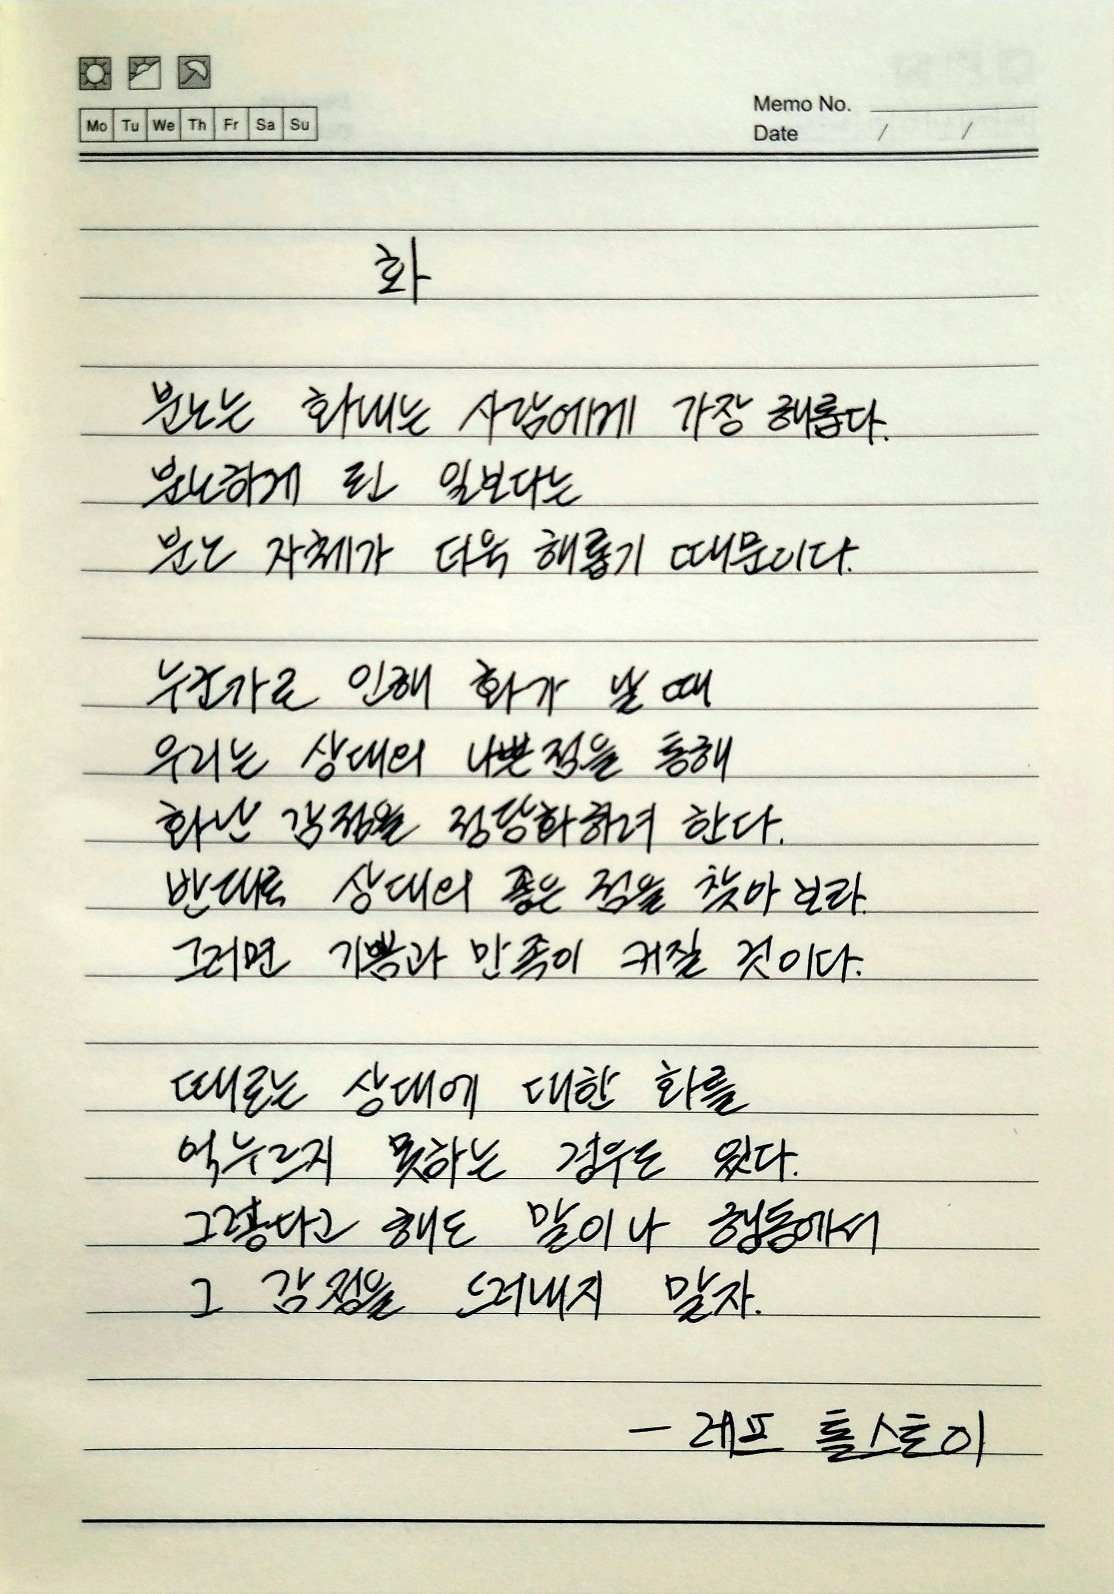 Mo Tu We Th Fr Sa Su
Memo No.
Date / /
화
분노는 화내는 사람에게 가장 해롭다.
분노하게 된 일보다는
분노 자체가 더욱 해롭기 때문이다.
누군가로 인해 화가 날 때
우리는 상대의 나쁜점을 통해
화난 감정을 정당화하려 한다.
반대로 상대의 좋은 점을 찾아 보라.
그러면 기쁨과 만족이 커질 것이다.
때로는 상대에 대한 화를
억누르지 못하는 경우도 있다.
그렇다고 해도 말이나 행동에서
그 감정을 드러내지 말자.
- 레프 톨스토이